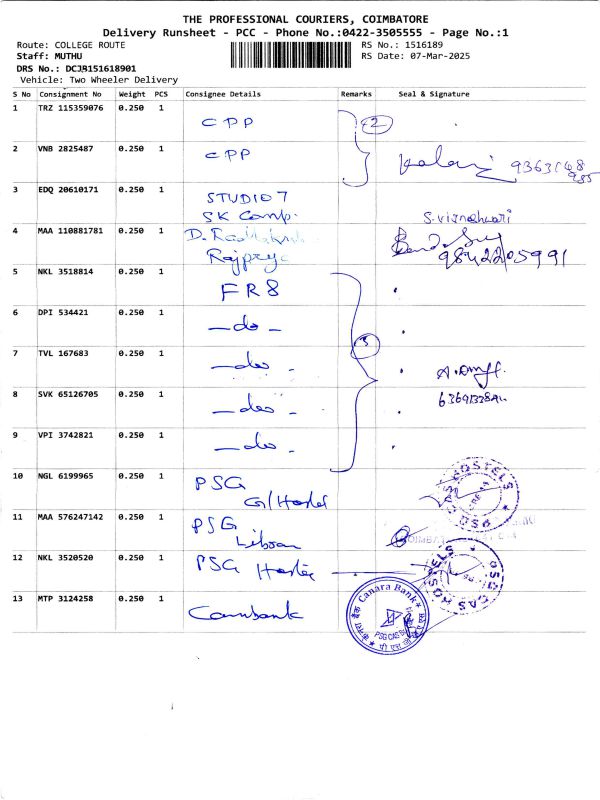 THE PROFESSIONAL COURIERS, COIMBATORE
Delivery Runsheet - PCC - Phone No.:0422-3505555 - Page No.:1
Route: COLLEGE ROUTE
RS No.: 1516189
Staff: MUTHU
RS Date: 07-Mar-2025
DRS No.: DCJB151618901
Vehicle: Two Wheeler Delivery
S No Consignment No Weight PCS Consignee Details Remarks Seal & Signature
1 TRZ 115359076 0.250 1 CPP 2
2 VNB 2825487 0.250 1 CPP
3 EDQ 20610171 0.250 1 STUDIO 7
SK Comp.
4 MAA 110881781 0.250 1 D.
9842205991
5 NKL 3518814 0.250 1 FR8
6 DPI 534421 0.250 1 -do-
7 TVL 167683 0.250 1 -do-
8 SVK 65126705 0.250 1 -do-
9 VPI 3742821 0.250 1 -do-
10 NGL 6199965 0.250 1 PSG
G/Hostel
11 MAA 576247142 0.250 1 PSG
12 NKL 3520520 0.250 1 PSG Hostel
PSG CAS HOSTELS
13 MTP 3124258 0.250 1 Canbank
Canara Bank